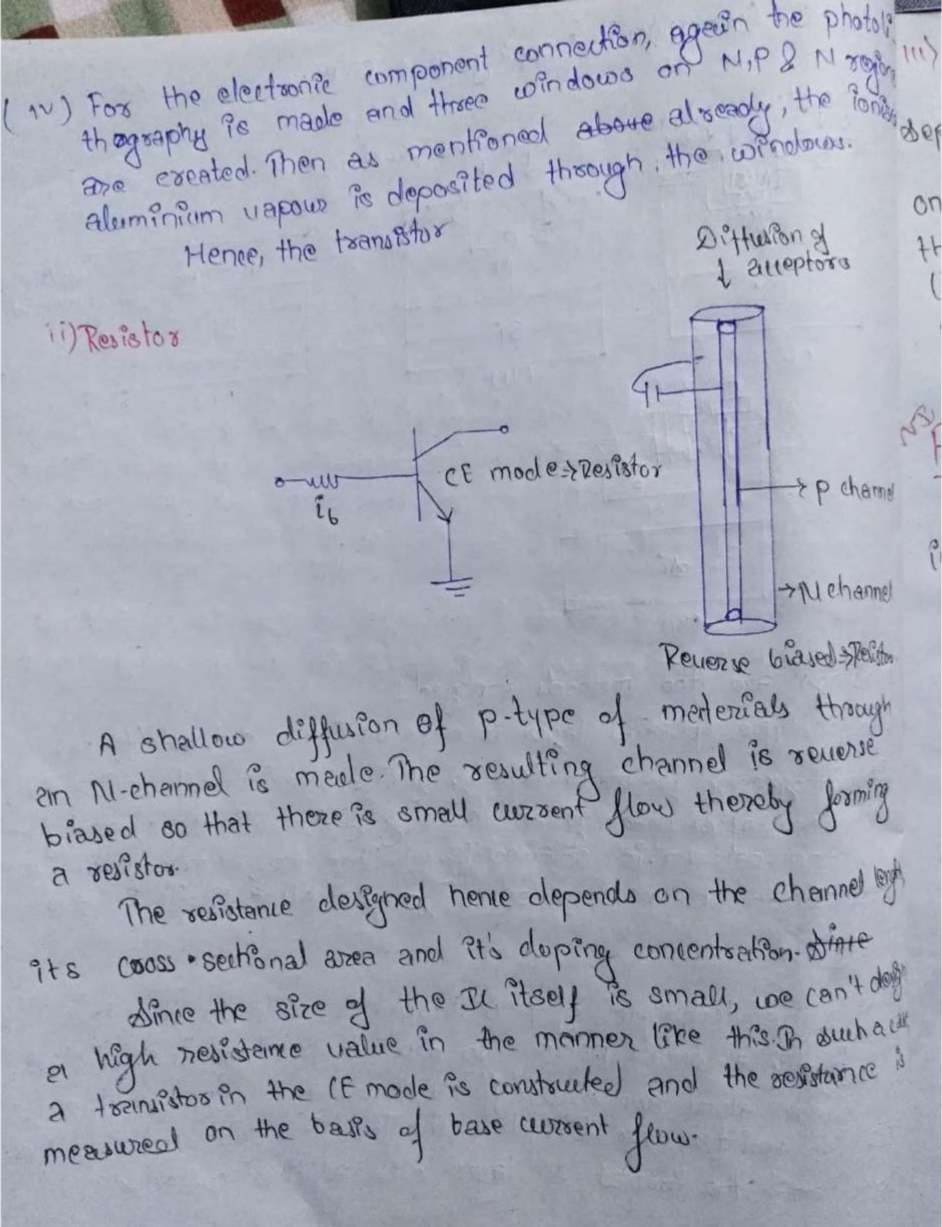 (iv) For the electronic component connection, again the photoli
thography is made and three windows on N,P & N region
are created. Then as mentioned above already, the ionis
aluminium vapour is deposited through the windows.
Hence, the transistor
ii) Resistor
Diffusion of
↓ acceptors
CE mode → Resistor
ib
→ P channel
→ N channel
Reverse biased → Resistor
A shallow diffusion of p-type of materials through
an N-channel is made. The resulting channel is reverse
biased so that there is small current flow thereby forming
a resistor.
The resistance designed hence depends on the channel length
its cross-sectional area and it's doping concentration. since
Since the size of the IC itself is small, we can't
a high resistance value in the manner like this. In such a
a transistor in the CE mode is constructed and the resistance is
measured on the basis of base current flow.
iii)
dep
on
th
(